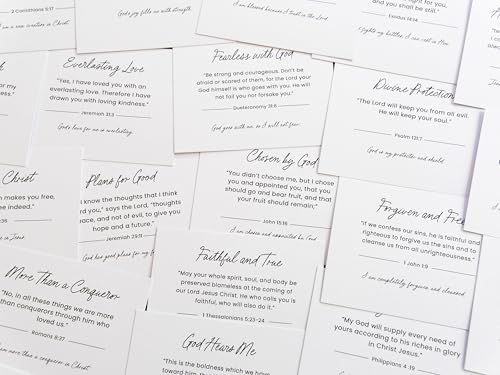 2 Corinthians 5:17
God's joy fills me with strength.
I am blessed because I trust in the Lord
and you shall be still."
Exodus 14:14
Everlasting Love
"Yes, I have loved you with an
everlasting love. Therefore I have
drawn you with loving kindness."
Jeremiah 31:3
God's love for me is everlasting.
Fearless with God
"Be strong and courageous. Don't be
afraid or scared of them, for the Lord your
God himself is who goes with you. He will
not fail you nor forsake you."
Deuteronomy 31:6
God goes with me, so I will not fear.
Divine Protection
"The Lord will keep you from all evil.
He will keep your soul."
Psalm 121:7
God is my protector and shield.
Christ
makes you free,
indeed."
in Jesus
Plans for Good
know the thoughts that I think
you," says the Lord, "thoughts
peace, and not of evil, to give you
hope and a future,"
Jeremiah 29:11
God has good plans for my
Chosen by God
"You didn't choose me, but I chose
you and appointed you, that you
should go and bear fruit, and that
your fruit should remain,"
John 15:16
I am chosen and appointed by God
Forgiven and Free
"if we confess our sins, he is faithful and
righteous to forgive us the sins and to
cleanse us from all unrighteousness."
1 John 1:9
I am completely forgiven and cleansed
More Than a Conqueror
"No, in all these things we are more
than conquerors through him who
loved us."
Romans 8:37
more than a conqueror in Christ
Faithful and True
"May your whole spirit, soul, and body be
preserved blameless at the coming of
our Lord Jesus Christ. He who calls you is
faithful, who will also do it."
1 Thessalonians 5:23-24
God Hears Me
"This is the boldness which we have
toward him, that
"My God will supply every need of
yours according to his riches in glory
in Christ Jesus."
Philippians 4:19